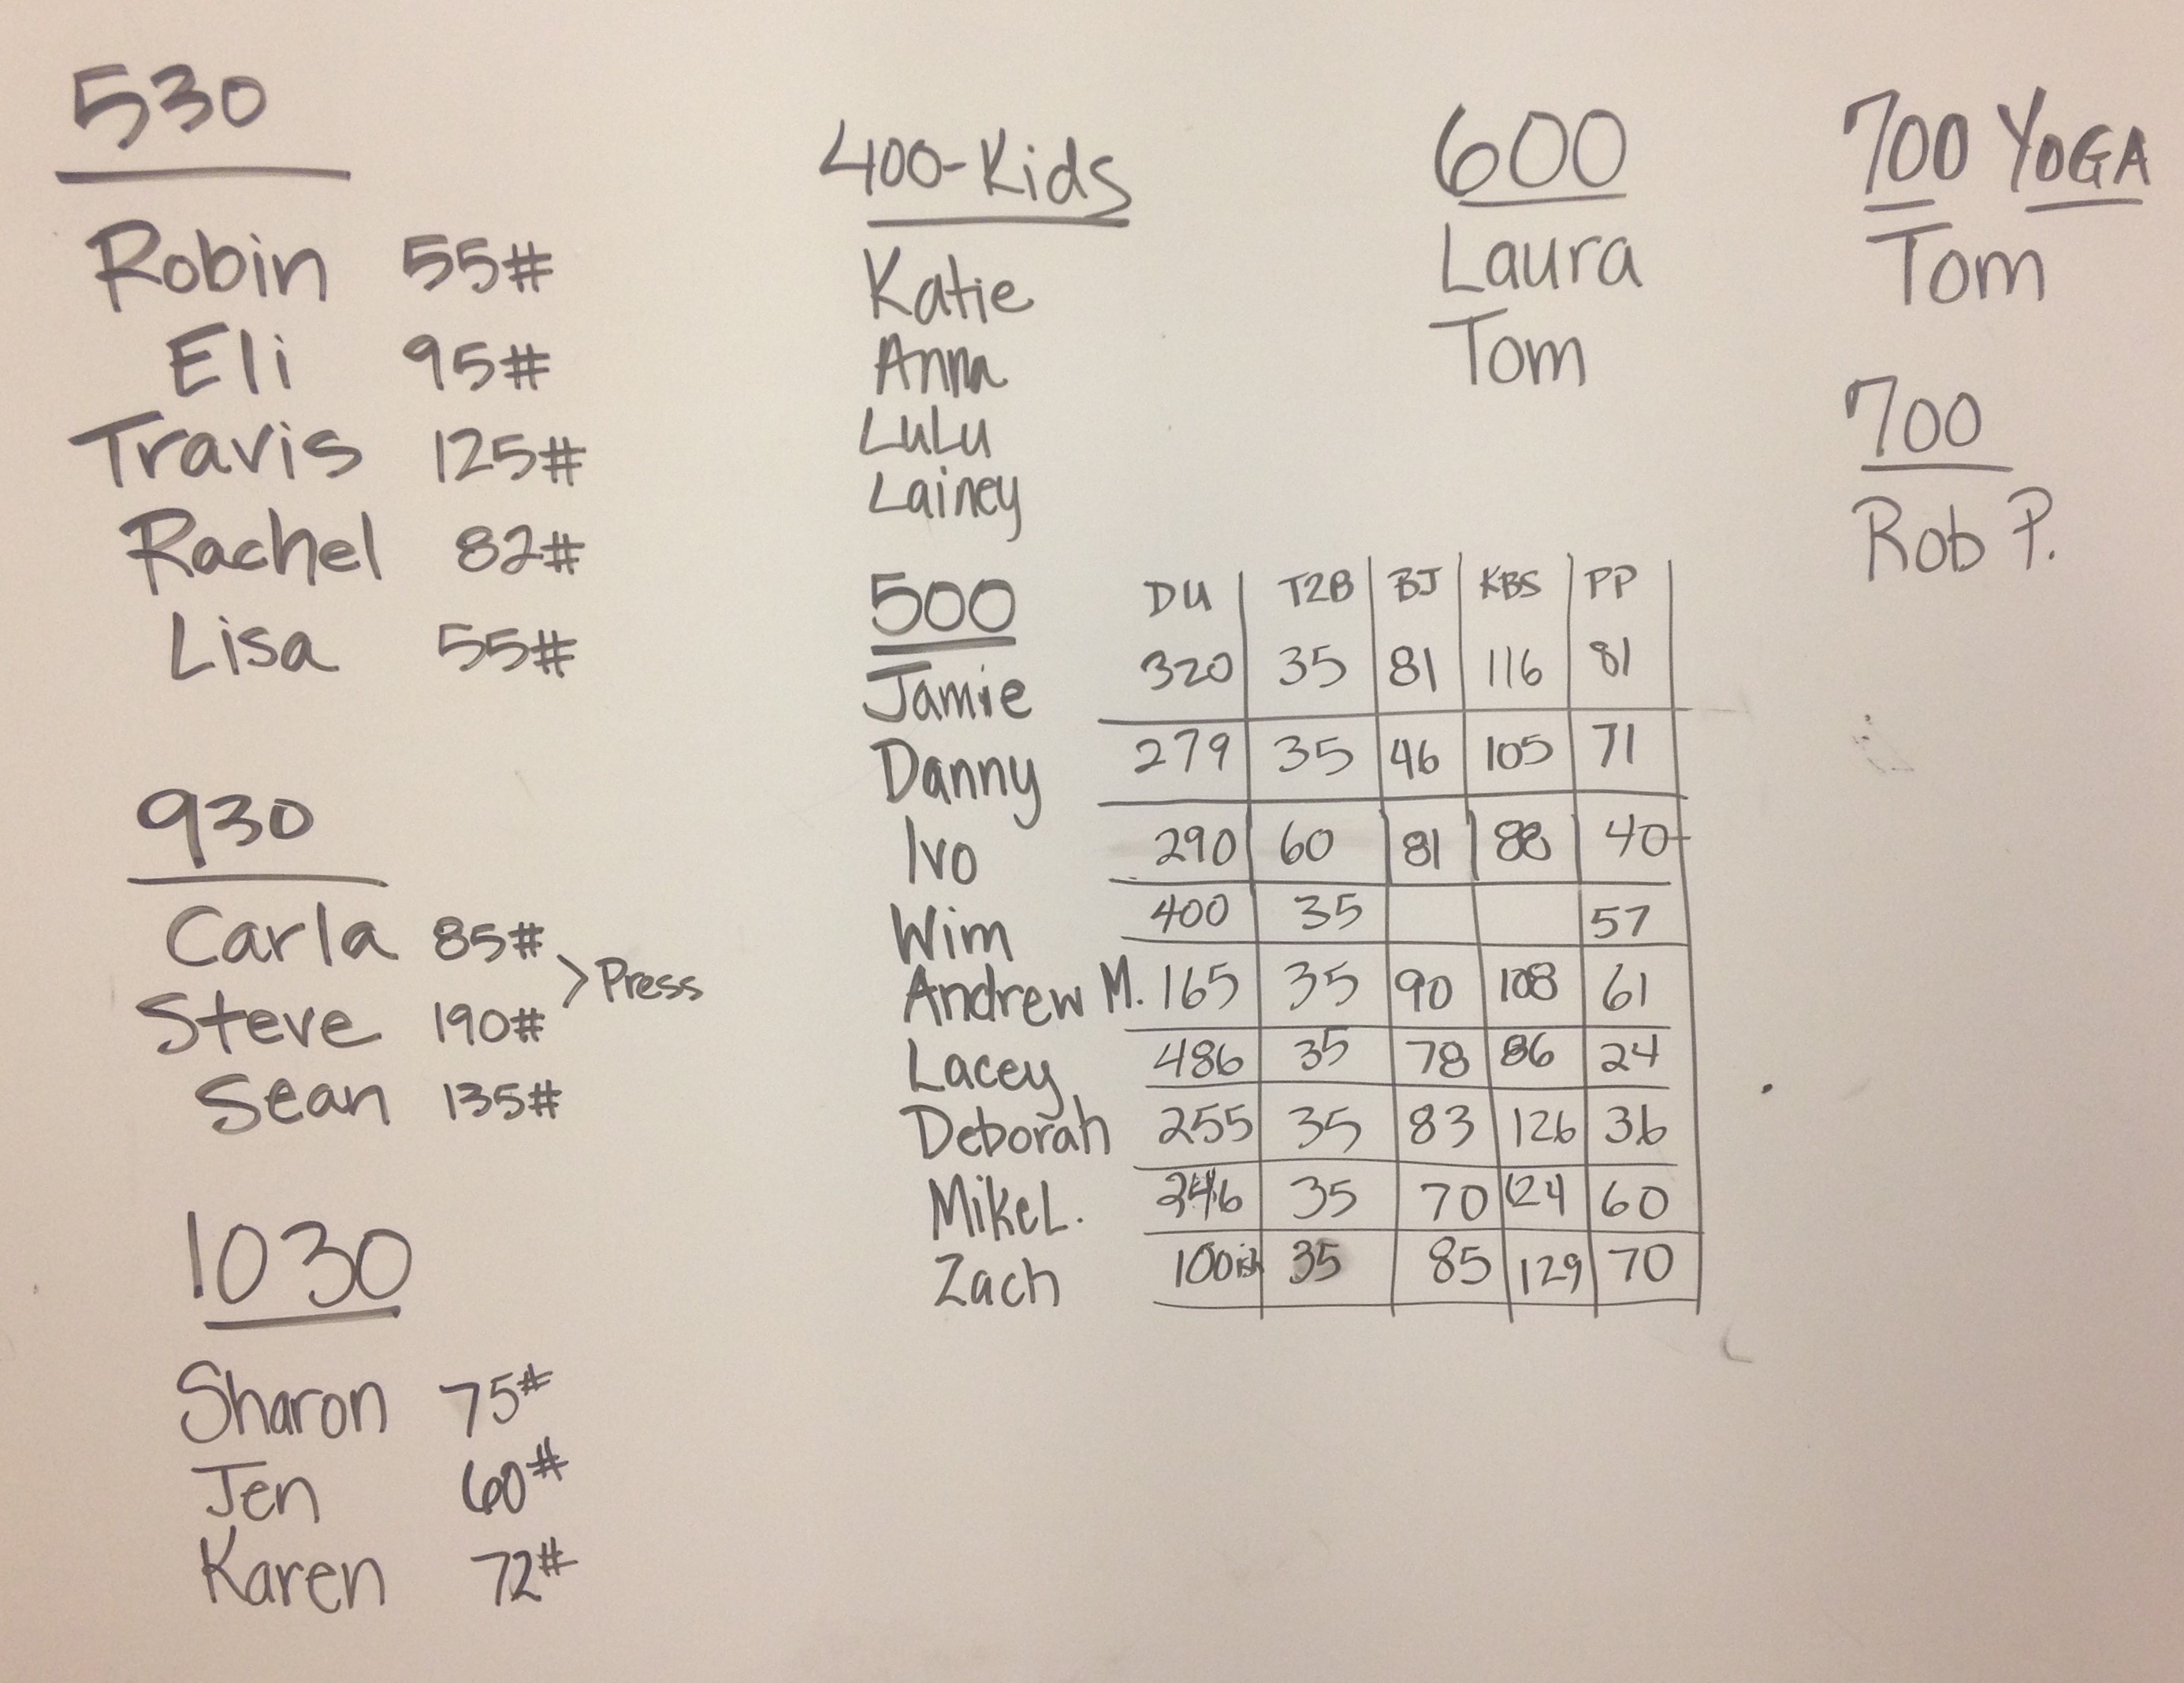 530
Robin 55#
Eli 95#
Travis 125#
Rachel 82#
Lisa 55#
930
Carla 85#
> Press
Steve 190#
Sean 135#
1030
Sharon 75#
Jen 60#
Karen 72#
400-Kids
Katie
Anna
LuLu
Lainey
500 DU T2B BJ KBS PP
Jamie 320 35 81 116 81
Danny 279 35 46 105 71
Ivo 290 60 81 88 40
Wim 400 35 57
Andrew M. 165 35 90 108 61
Lacey 486 35 78 86 24
Deborah 255 35 83 126 36
Mike L. 35 70 124 60
Zach 100ish 35 85 129 70
600
Laura
Tom
700 YOGA
Tom
700
Rob P.